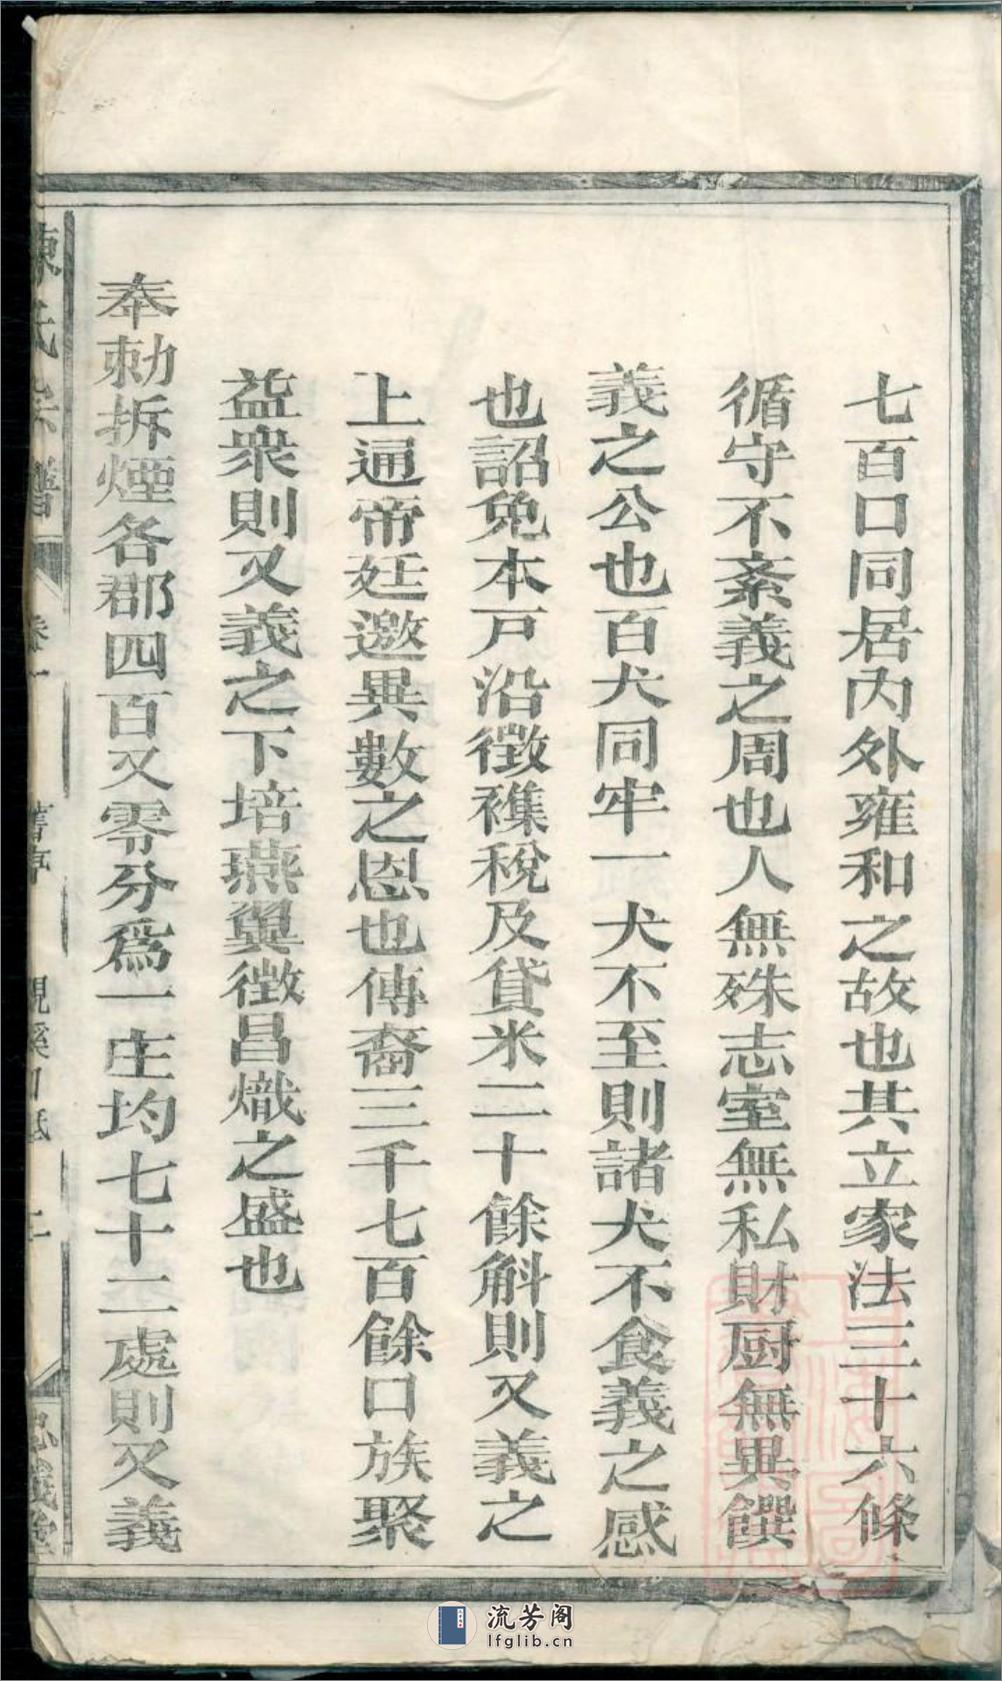 七百口同居內外雍和之故也其立家法三十六條
循守不紊義之周也人無殊志室無私財厨無異饌
義之公也百犬同牢一犬不至則諸犬不食義之感
也詔免本戸沿徵襍稅及貸米二十餘斛則又義之
上通帝廷邀異數之恩也傳裔三千七百餘口族聚
益衆則又義之下培燕翼徵昌熾之盛也
奉勅拆煙各郡四百又零分爲一庄均七十二處則又義
陳氏宗譜
卷一
二
忠義堂
流芳阁
lfglib.cn